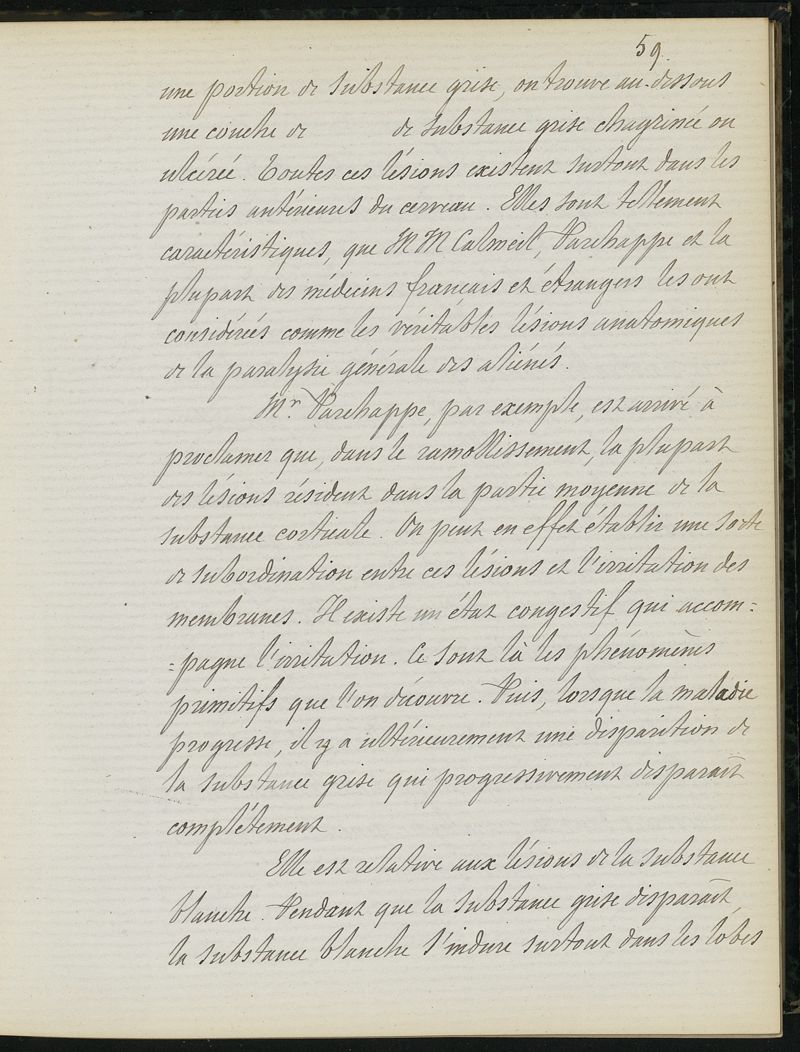 59.
une portion de substance grise, on trouve au-dessous
une couche de de substance grise chagrinée ou
ulcérée. Toutes ces lésions existent surtout dans les
parties antérieures du cerveau. Elles sont tellement
caractéristiques, que MM Calmeil, Parchappe et la
plupart des médecins français et étrangers les ont
considérées comme les véritables lésions anatomiques
de la paralysie générale des aliénés.
Mr. Parchappe, par exemple, est arrivé à
proclamer que, dans le ramollissement, la plupart
des lésions résident dans la partie moyenne de la
substance corticale. On peut en effet établir une sorte
de subordination entre ces lésions et l'irritation des
membranes. Il existe un état congestif qui accom=
=pagne l'irritation. Ce sont là les phénomènes
primitifs que l'on découvre. Puis, lorsque la maladie
progresse, il y a ultérieurement une disparition de
la substance grise qui progressivement disparaît
complétement.
Elle est relative aux lésions de la substance
blanche. Pendant que la substance grise disparaît,
la substance blanche s'indure surtout dans les lobes